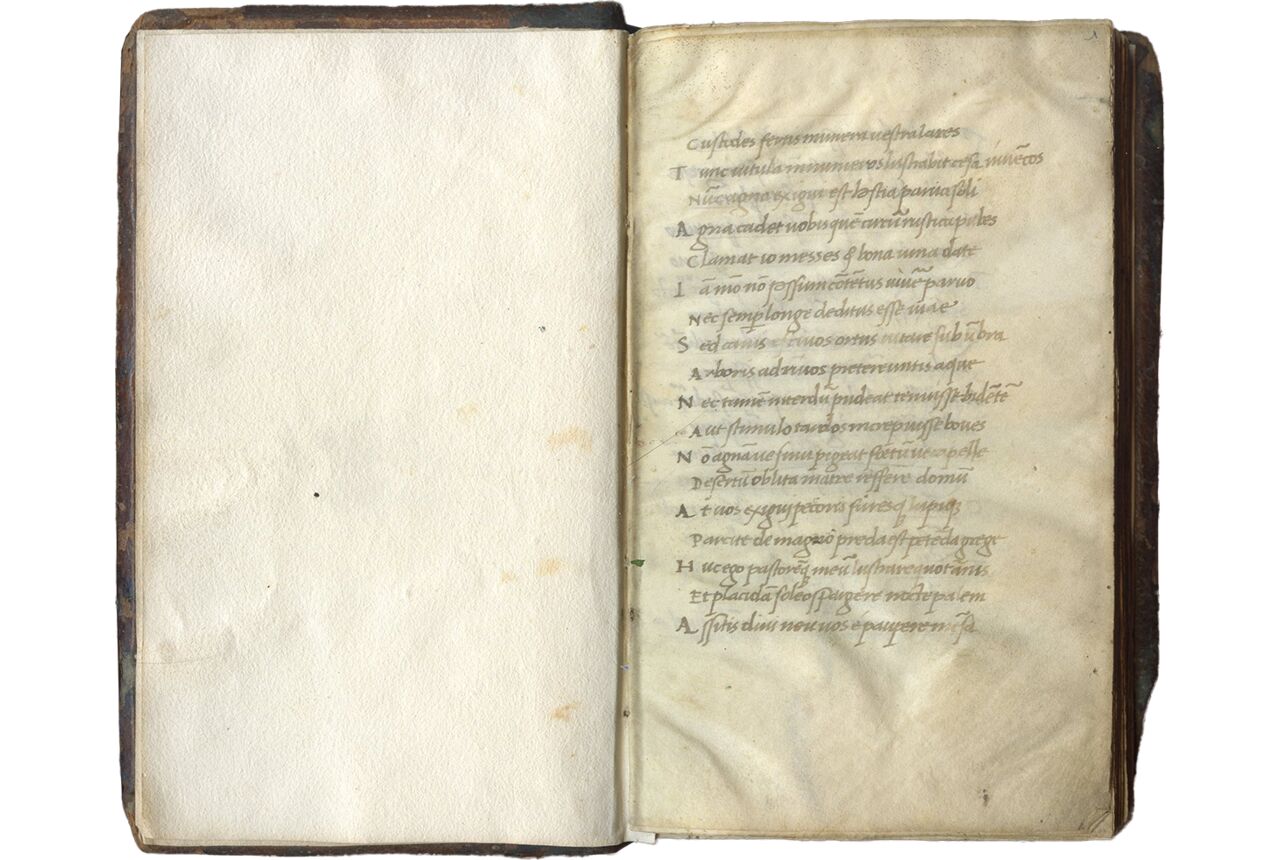 1
Custodes fertis munera uestra lares
Tunc uitula innumeros lustrabit cesa iuuēcos
Nūc agna exigui est hostia parua soli
Agna cadet uobis quē circū rustica pubes
Clamat io messes & bona uina date
Iā mō nō possum cōtētus uiuē paruo
Nec semp longe deditus esse uiae
Sed canis estiuos ortus uitare sub ūbra
Arboris ad riuos pretereuntis aque
Nec tamē interdū pudeat tenuisse bidētē
Aut stimulo tardos increpuisse boues
Nō agnāue sinu pigeat foetūue capelle
Desertū oblita matre refferre domū
At uos exigui pecoris furesq lupiq
Parcite de magno preda est petēda grege
Huc ego pastorēq meū lustrare quotānis
Et placidā soleo spargere lacte palem
Assitis diui neu uos e paupere mēsa